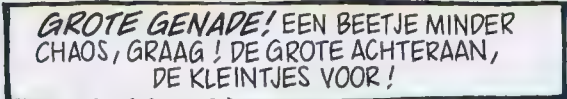 GROTE GENADE! EEN BEETJE MINDER
CHAOS, GRAAG! DE GROTE ACHTERAAN,
DE KLEINTJES VOOR!